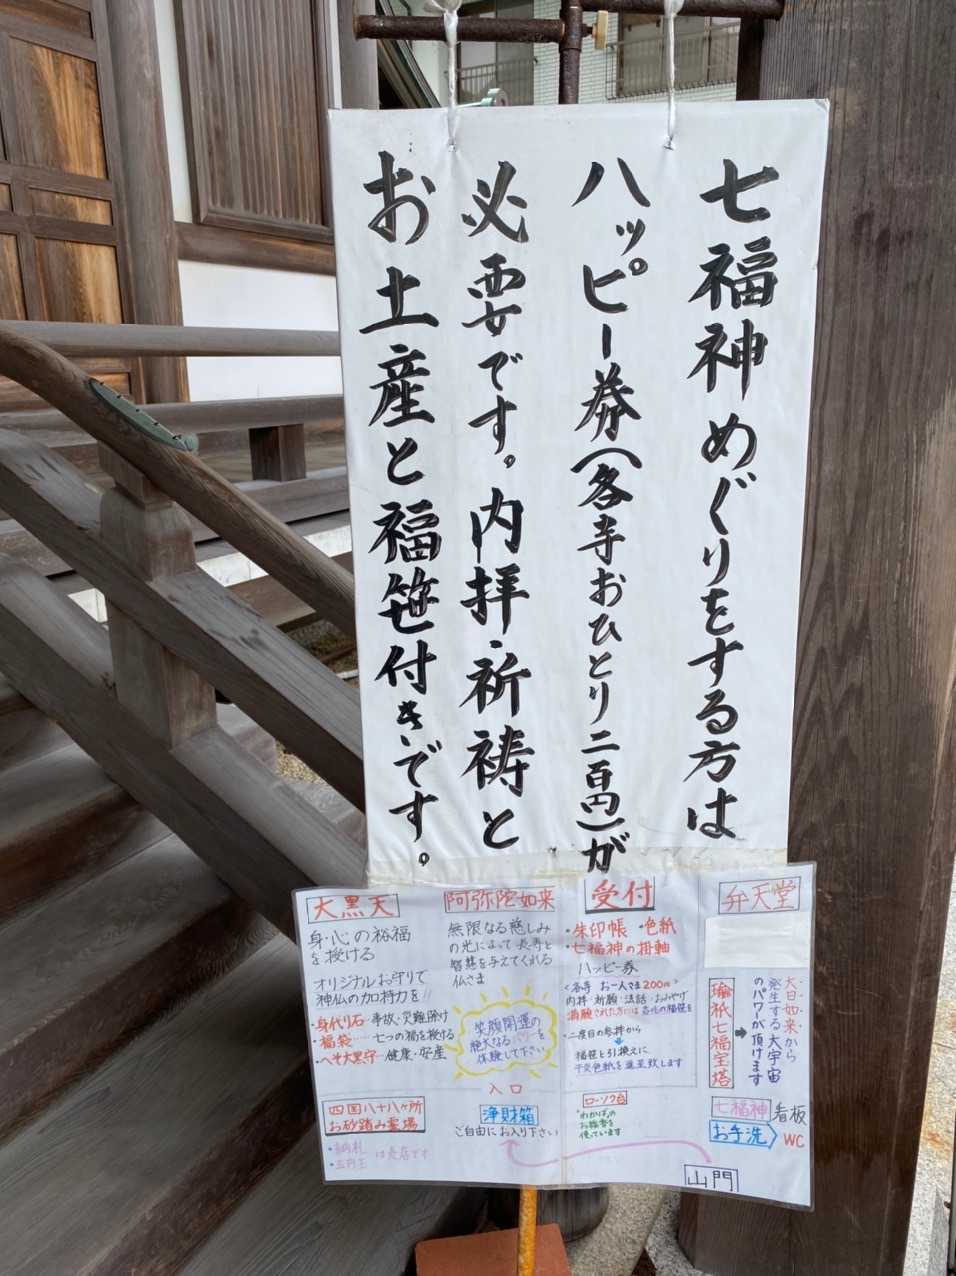 七福神めぐりをする方は
ハッピー券(各寺おひとり二百円)が
必要です。内拝・祈祷と
お土産と福笹付きです。
大黒天
身・心の裕福
を授ける
オリジナルお守りで
神仏の加持力を!!
・身代り石…事故・災難除け
・福袋……七つの福を授ける
・ヘソ大黒守…健康・安産
四国八十八ヶ所
お砂踏み霊場
・納札
は売店です
阿弥陀如来
無限なる慈しみ
の光によって長寿と
智慧を与えてくれる
仏さま
笑顔開運の
絶大なるパワーを
体験して下さい
入口
浄財箱
ご自由にお入り下さい
受付
・朱印帳 ・色紙
・七福神の掛軸
ハッピー券
<各寺 お一人さま200円>
内拝・祈願・法話・おみやげ
満願された方には吉化の福笹を
・二度目の参拝から
福笹と引換えに
干支色紙を進呈致します
ローソク台
・わかばの
お線香を
使っています
弁天堂
大日如来から
発生する大宇宙
のパワーが頂けます
瑜祇七福宝塔
七福神看板
お手洗 WC
山門